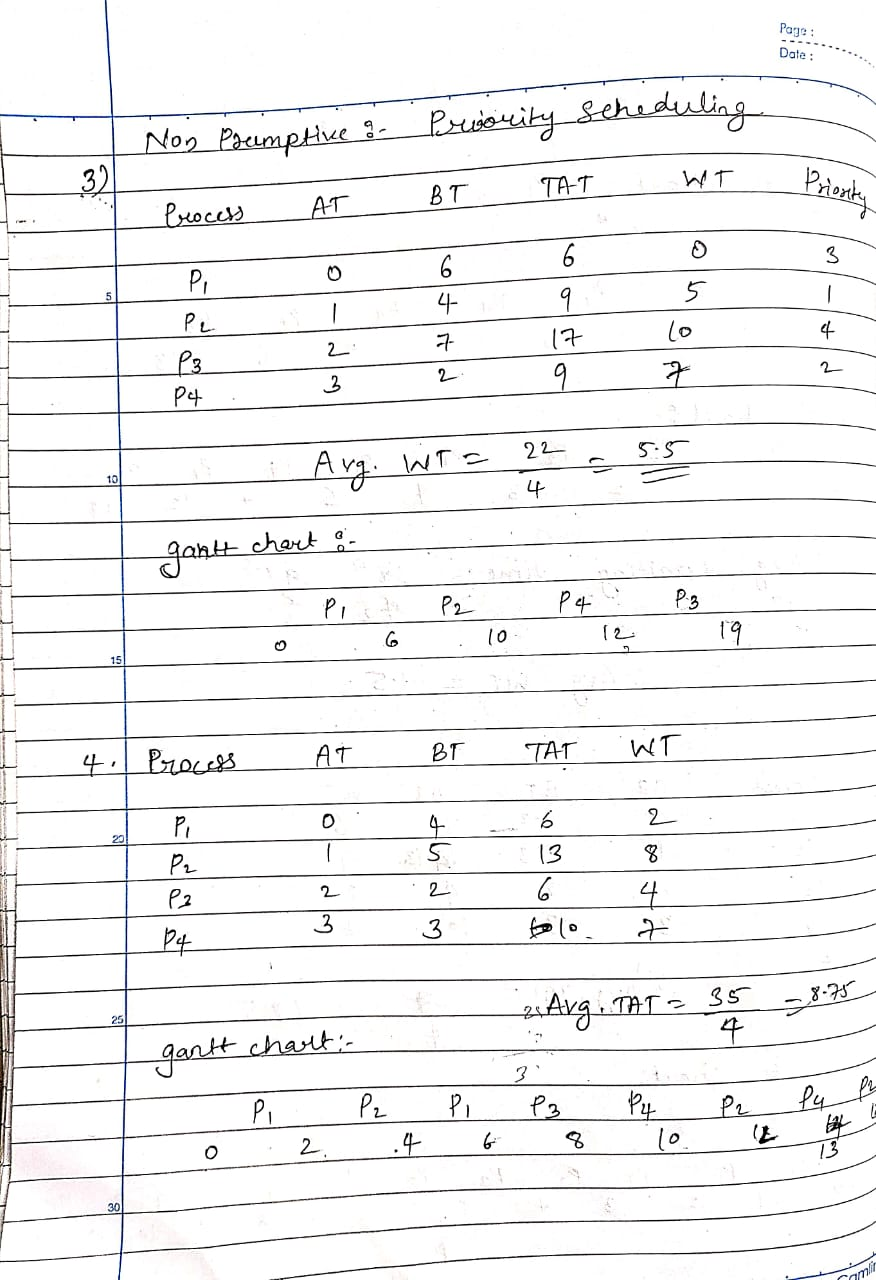 Page :
Date :
Non Preumptive :- Priority Scheduling
3)
Process AT BT TAT WT Priority
P1 0 6 6 0 3
5
P2 1 4 9 5 1
P3 2 7 17 10 4
P4 3 2 9 7 2
Avg. WT = 22/4 = 5.5
10
gantt chart :-
P1 P2 P4 P3
0 6 10 12 19
15
4. Process AT BT TAT WT
P1 0 4 6 2
20
P2 1 5 13 8
P3 2 2 6 4
P4 3 3 10 7
Avg. TAT = 35/4 = 8.75
25
gantt chart :-
P1 P2 P1 P3 P4 P2 P4
0 2 4 6 8 10 12 13
30